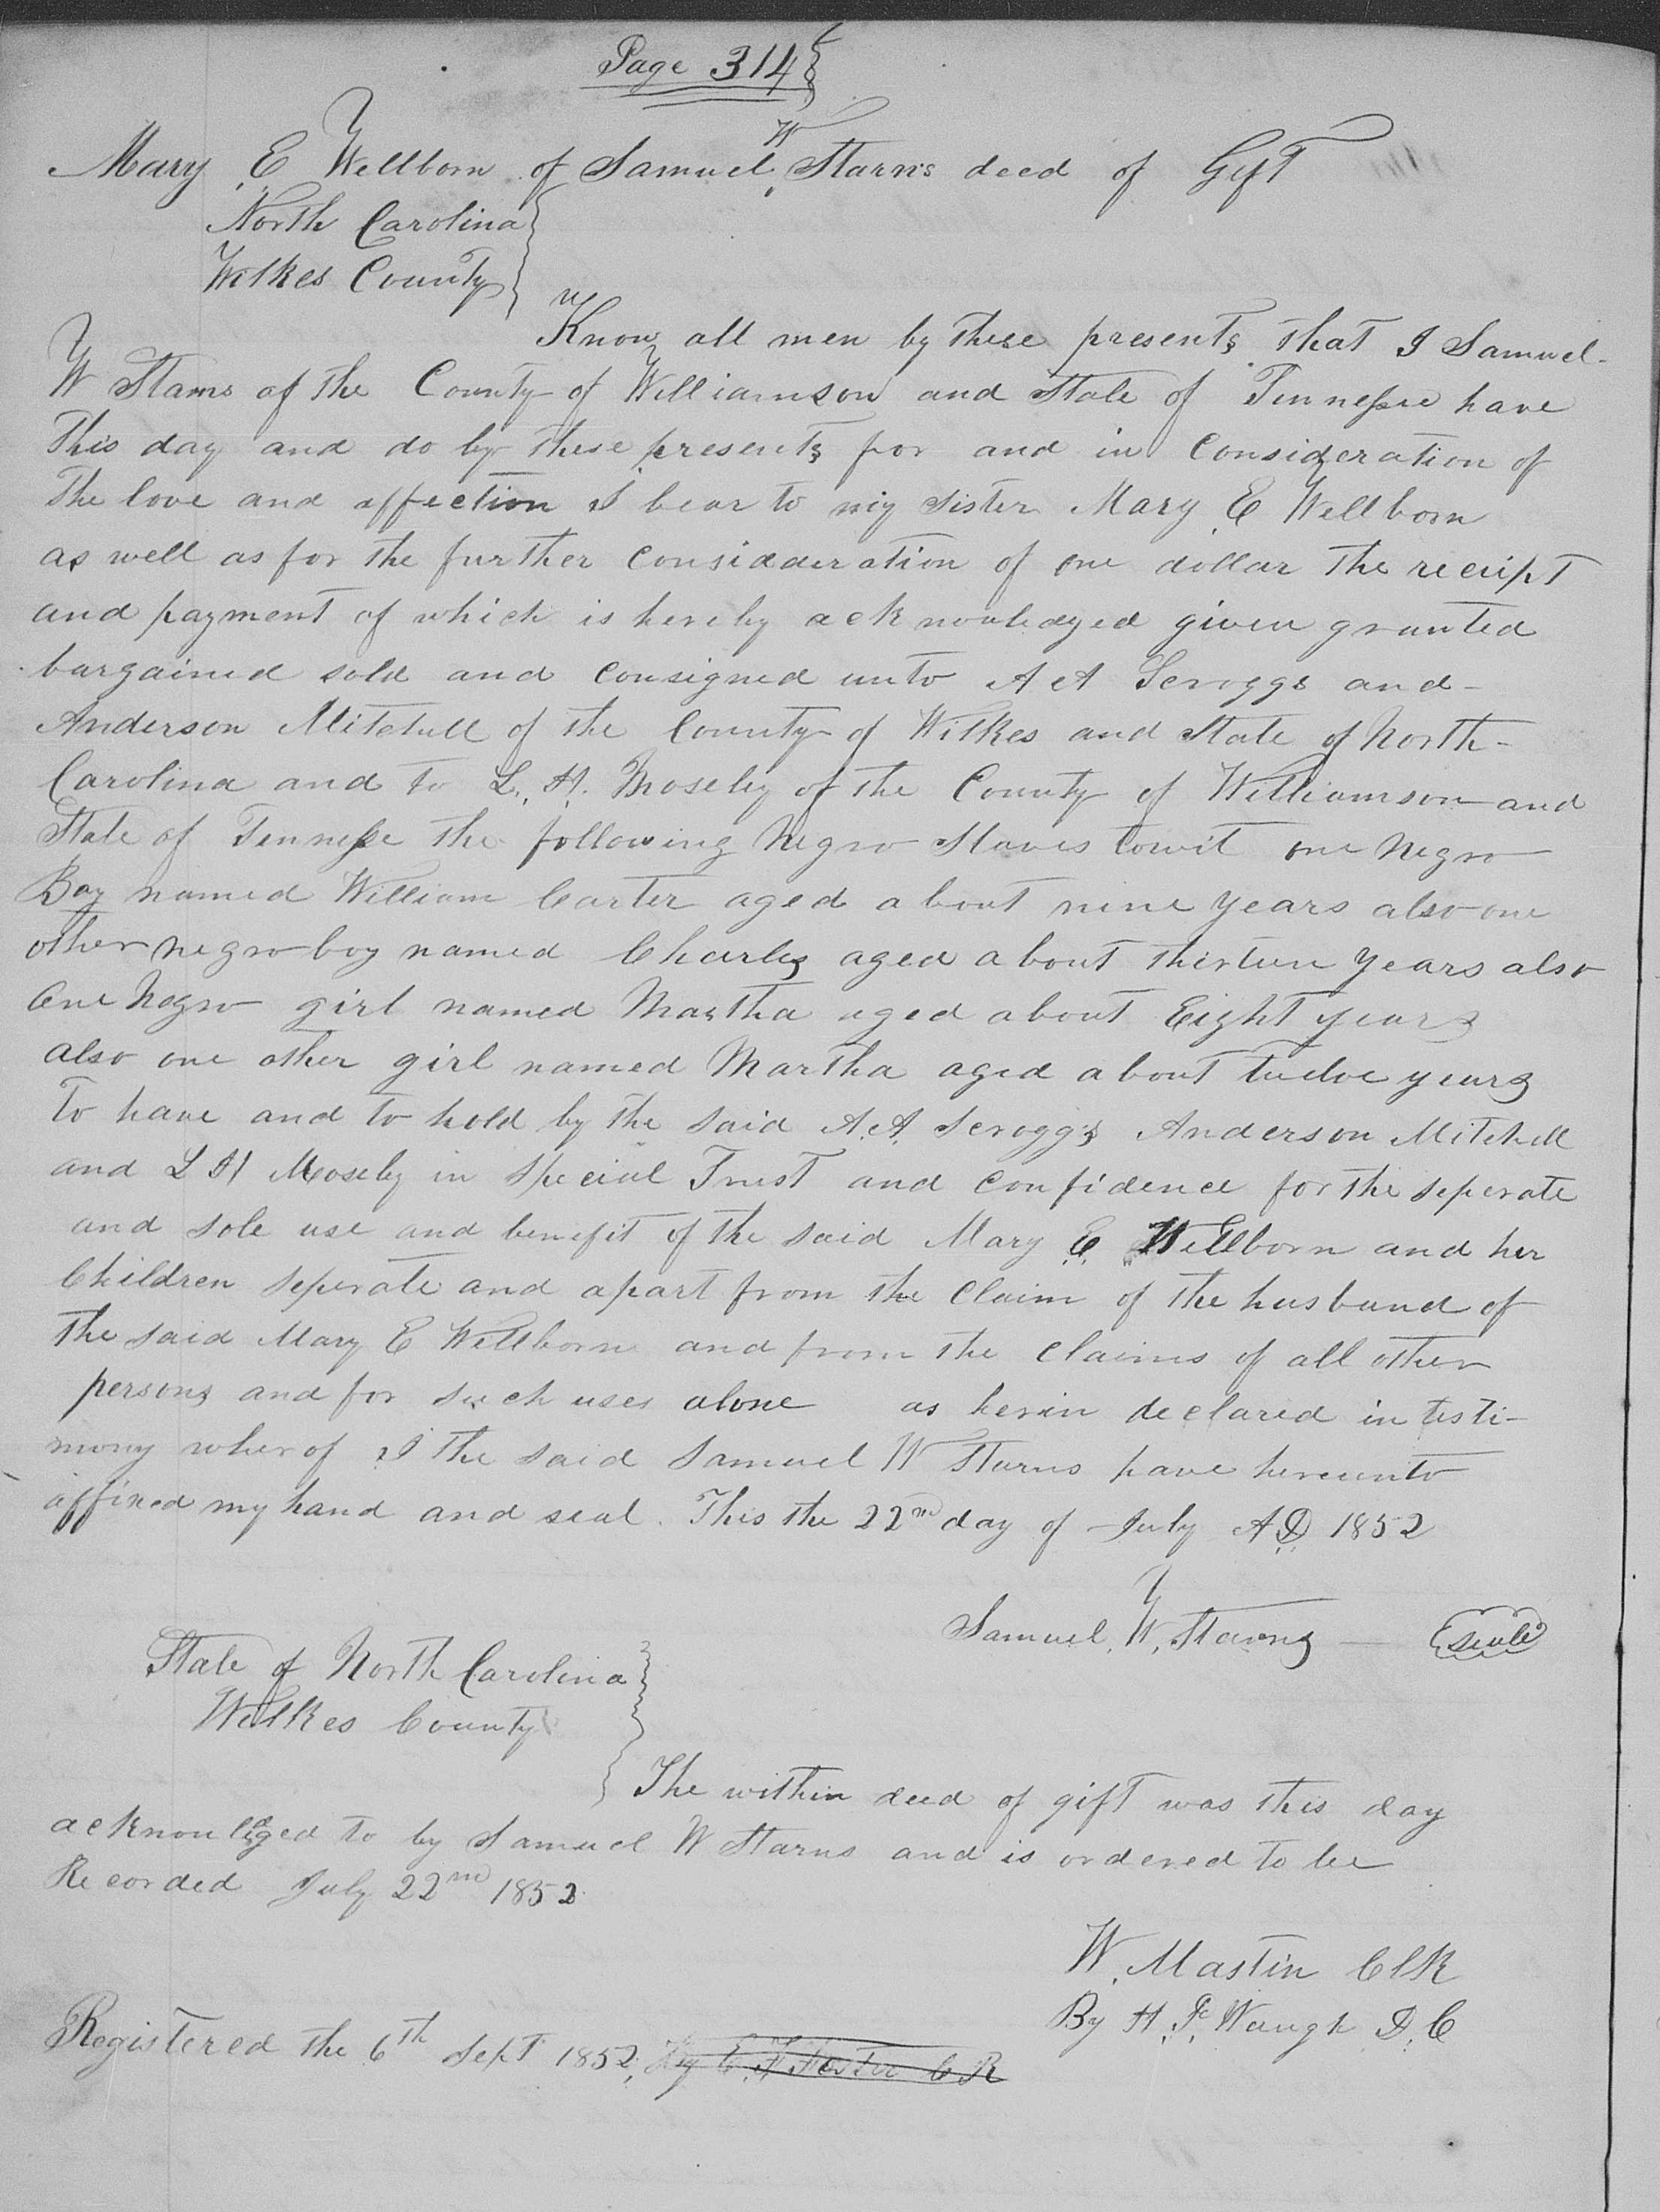 Page 314
Mary E Wellborn of Samuel W Starns deed of Gift
North Carolina
Wilkes County
Know all men by these presents that I Samuel
W Starns of the County of Williamson and State of Tennessee have
This day and do by these presents for and in Consideration of
The love and affection I bear to my sister Mary E Wellborn
as well as for the further Considderation of one dollar the reciept
and payment of which is hereby acknowledged given granted
bargained sold and Consigned unto A A Scroggs and
Anderson Mitchell of the County of Wilkes and State of North-
Carolina and to L. H. Mosely of the County of Williamson and
State of Tennesse the following Negro Slaves towit one Negro
Boy named William Carter aged about nine years also one
other negro boy named Charles aged about thirteen years also
One Negro girl named Martha aged about Eight years
also one other girl named Martha aged about twelve years
To have and to hold by the said A.A. Scroggs Anderson Mitchell
and L H Mosely in special Trust and confidence for the seperate
and sole use and benefit of the said Mary E Wellborn and her
Children seperate and apart from the Claim of the husband of
the said Mary E Wellborn and from the Claims of all other
persons and for such uses alone as herin declared in testi-
mony wherof I the said Samuel W Starns have hereunto
affixed my hand and seal. This the 22nd day of July AD 1852
Samuel. W. Starns seale
State of North Carolina
Wilkes County
The within deed of gift was this day
acknowledged to by Samuel W Starns and is ordered to be
Recorded July 22nd 1852
W. Mastin Clk
By H. P. Waugh D. C
Registered the 6th Sept 1852,